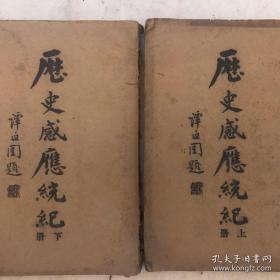 歷史感應統紀
上冊
譚延闓題
歷史感應統紀
下冊
譚延闓題
孔夫子旧书网